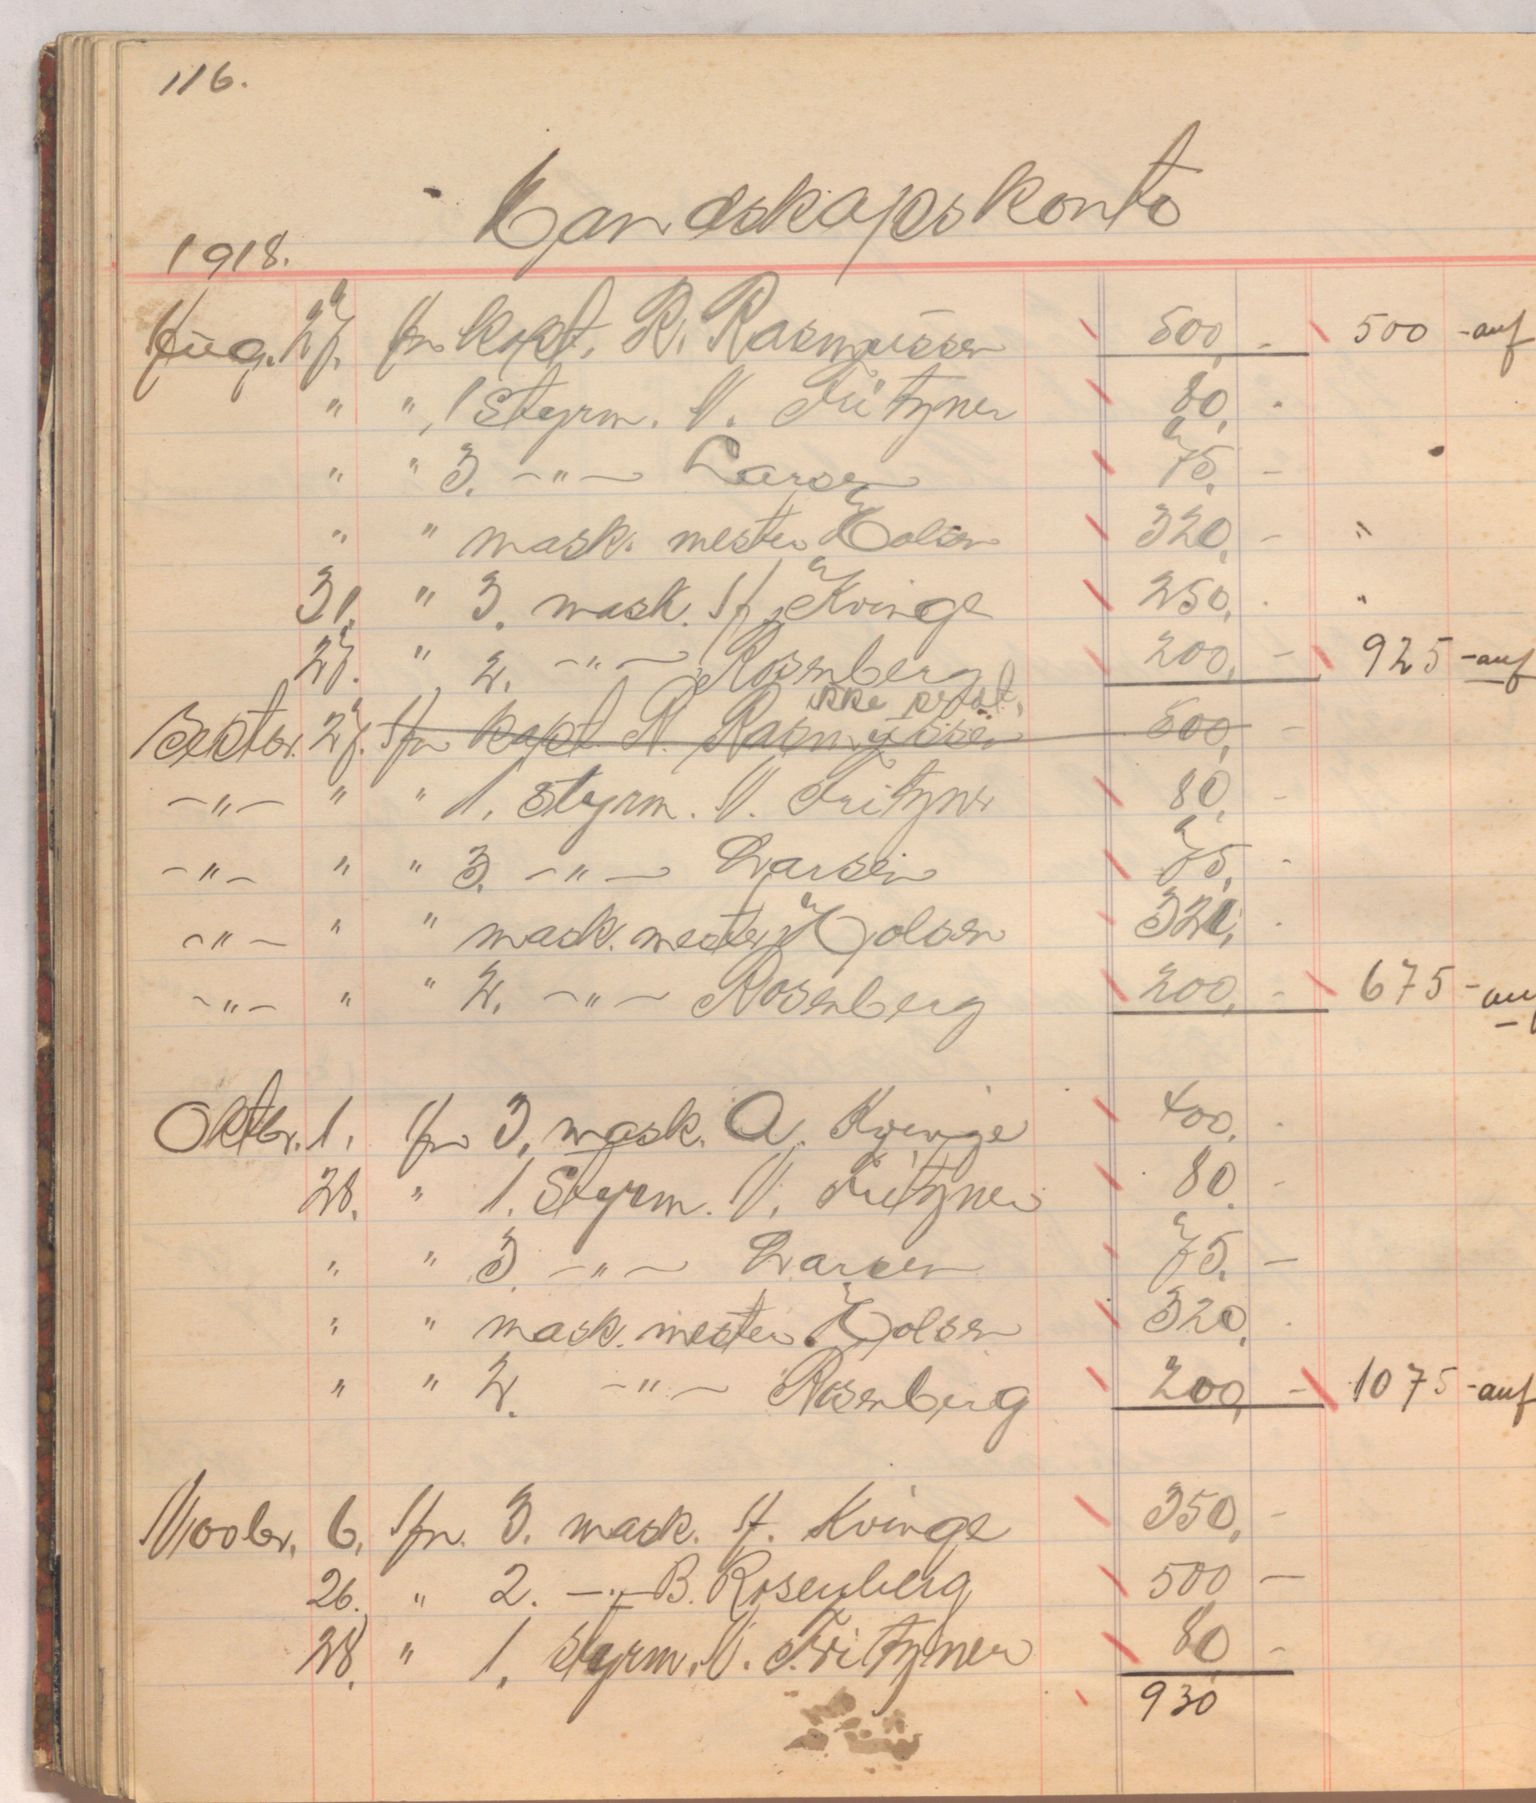 116.
Mandskapskonto
1918.
Aug. 27. fra kapt. R. Rasmussen 500, - 500 -auf
" " 1 styrm. N. Fritzner 80, -
" " 3. -"- Larsen 75, -
" " mask. mester T. Colsen 320, - "
31. " 3. mask. A. Kvinge 250, - "
27. " 2. -"- Rosenberg 200, - 925 -auf
ikke betalt.
Septbr. 27. fra kapt R. Rasmussen 500, -
-"- " " 1. styrm. N. Fritzner 80, -
-"- " " 3. -"- Larsen 75, -
-"- " " mask. mester T. Colsen 320, -
-"- " " 2. -"- Rosenberg 200, - 675 -auf
Oktbr. 1. fra 3. mask. A. Kvinge 400, -
28. " 1. Styrm. N. Fritzner 80, -
" " 3. -"- Larsen 75. -
" " mask. mester T. Colsen 320, -
" " 2. -"- Rosenberg 200, - 1075 -auf
Novbr. 6. fra. 3. mask. A. Kvinge 350, -
26. " 2. -"- B. Rosenberg 500 -
28. " 1. styrm. N. Fritzner 80 -
930